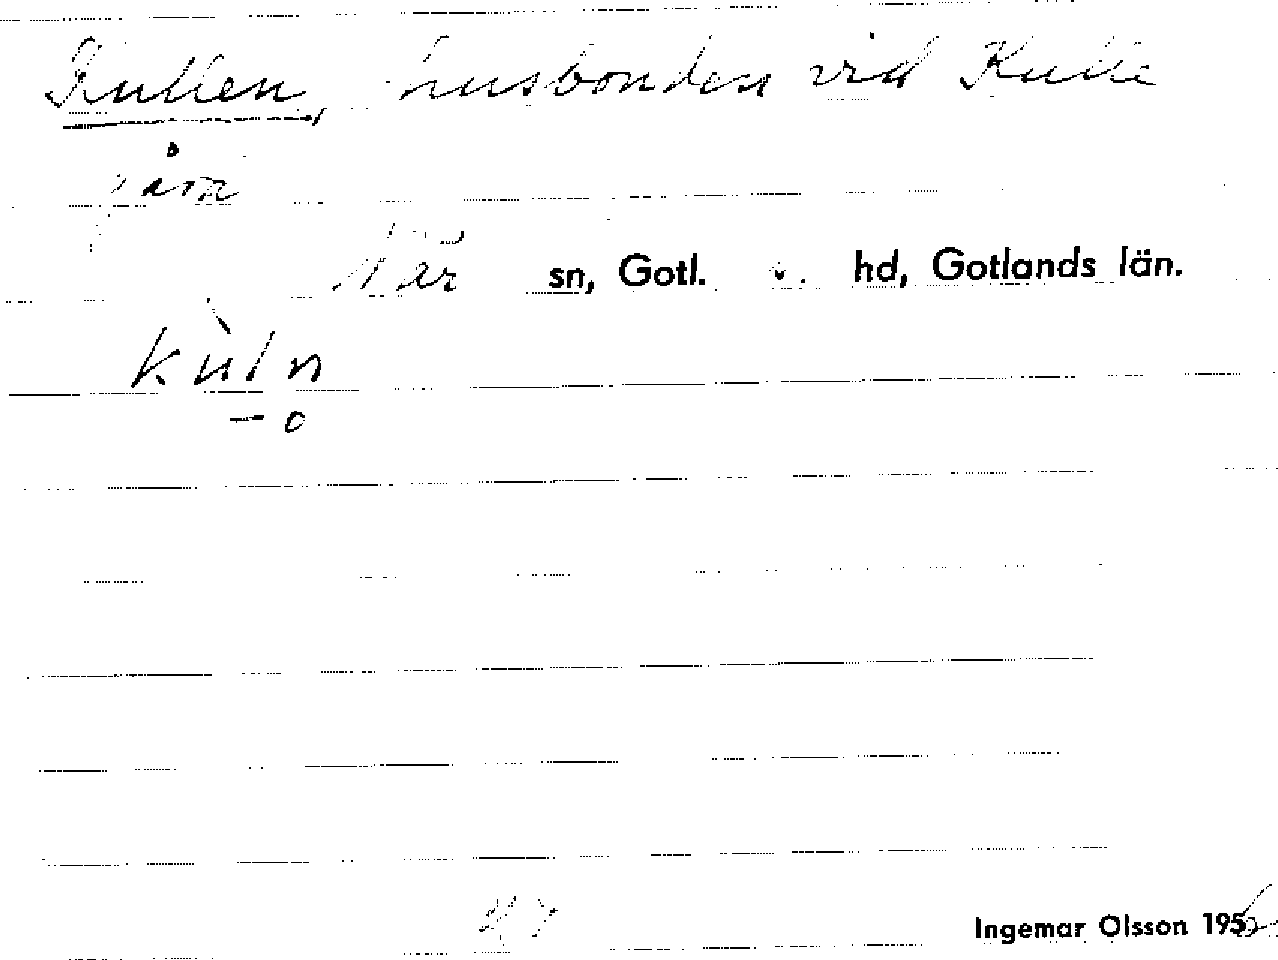 Kullen, husbonden vid Kulle
När sn, Gotl. s. hd, Gotlands län.
kùln
Ingemar Olsson 1956